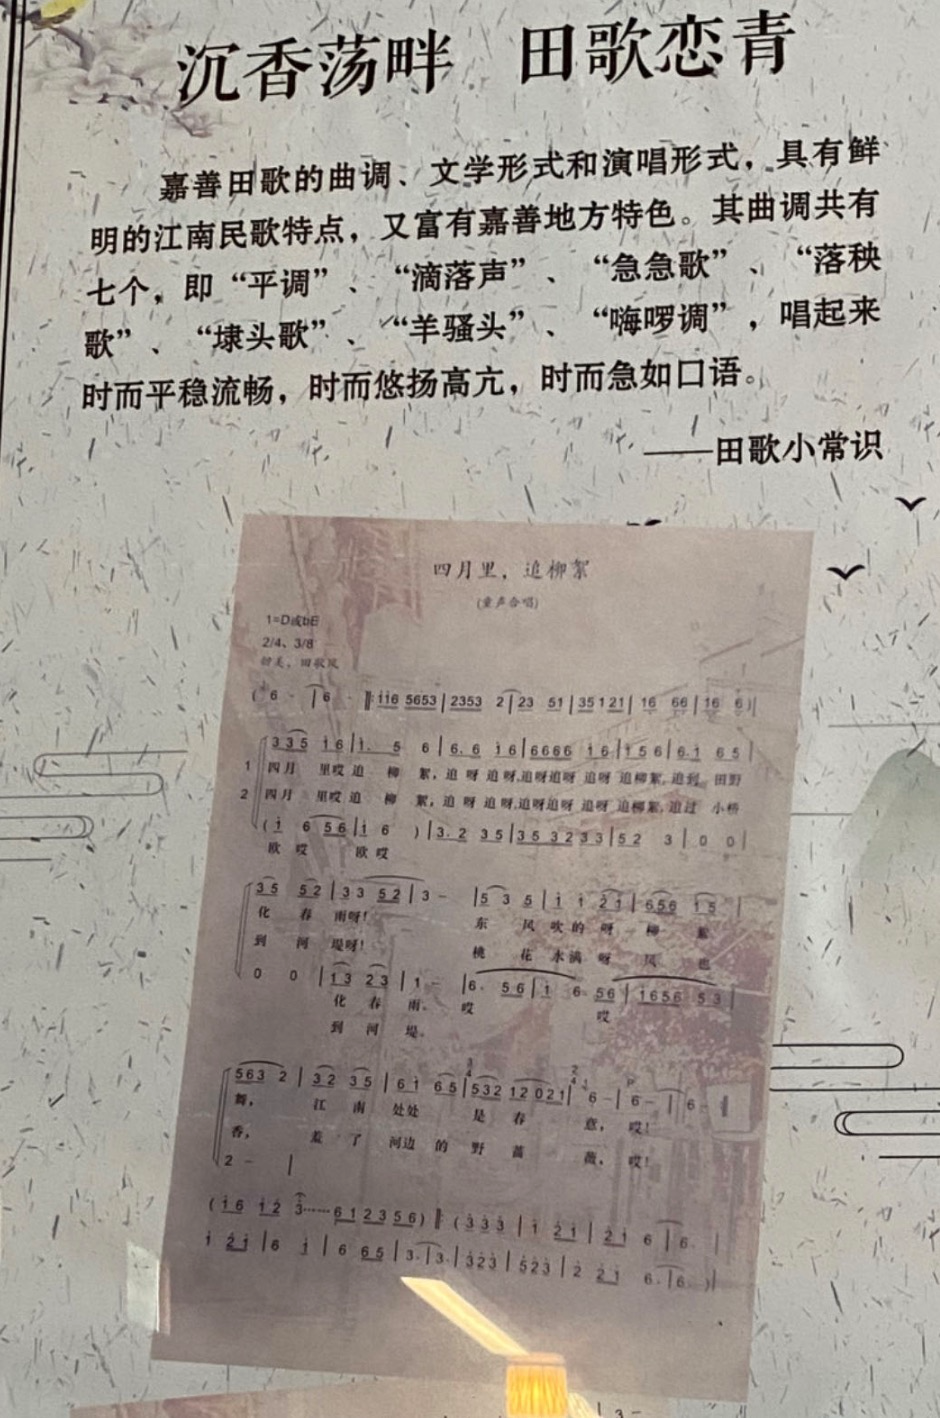 沉香荡畔 田歌恋青
嘉善田歌的曲调、文学形式和演唱形式，具有鲜
明的江南民歌特点，又富有嘉善地方特色。其曲调共有
七个，即“平调”、“滴落声”、“急急歌”、“落秧
歌”、“埭头歌”、“羊骚头”、“嗨啰调”，唱起来
时而平稳流畅，时而悠扬高亢，时而急如口语。
——田歌小常识
四月里，追柳絮
(童声合唱)
1=D或bE
2/4、3/8
田歌风
( 6 - | 6 - ‖: 116 5653 | 2353 2 | 23 51 | 35 1 21 | 16 66 | 16 6 ) |
3 3 5 1 6 | 1. 5 6 | 6. 6 1 6 | 6666 1 6 | 1 5 6 | 6·1 6 5 |
1 四月 里哎 追 柳 絮，追 呀 追呀,追呀追呀 追呀 追柳絮,追到 田野
2 四月 里哎 追 柳 絮，追 呀 追呀,追呀追呀 追呀 追柳絮,追过 小桥
( 1 6 5 6 | 1 6 ) | 3. 2 3 5 | 3 5 3 2 3 3 | 5 2 3 | 0 0 |
欧 哎 欧 哎
3 5 5 2 | 3 3 5 2 | 3 - | 5 3 5 | 1 1 2 1 | 656 1 5 |
化 春 雨呀! 东 风 吹 的 呀 柳 絮
到 河 堤呀! 桃 花 水满 呀 风 也
0 0 | 1 3 2 3 | 1 - | 6· 5 6 | 1 6 5 6 | 1656 5 3 |
化 春 雨。 哎 哎
到 河 堤。
563 2 | 3 2 3 5 | 6 1 6 5 | 532 12 021 | 6 - | 6 - | 6 - ‖
舞， 江 南 处处 是 春 意， 哎!
香， 羞 了 河边 的 野 蔷 薇， 哎!
2 - |
( 1 6 1 2 3······ 6 1 2 3 5 6 ) ‖ ( 3 3 3 | 1 2 1 | 2 1 6 | 6. |
1 2 1 | 6 1 | 6 6 5 | 3. | 3. | 3 2 3 | 5 2 3 | 2 2 1 6. | 6. ) |